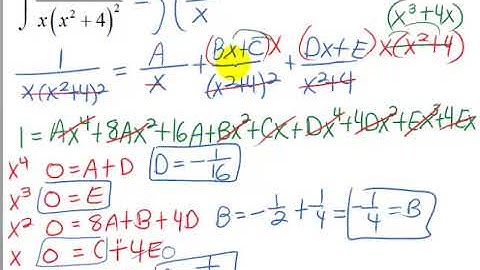 ∫ 1/(x(x²+4)²) = ∫( /x
(x³+4x)
1/(x(x²+4)²) = A/x + (Bx+C)x/(x²+4)² + (Dx+E)/(x²+4) x(x²+4)
1 = Ax⁴+8Ax²+16A+Bx²+Cx+Dx⁴+4Dx²+Ex³+4Ex
x⁴ 0 = A+D D = -1/16
x³ 0 = E
x² 0 = 8A+B+4D B = -1/2 + 1/4 = -1/4 = B
x 0 = C+4E 0